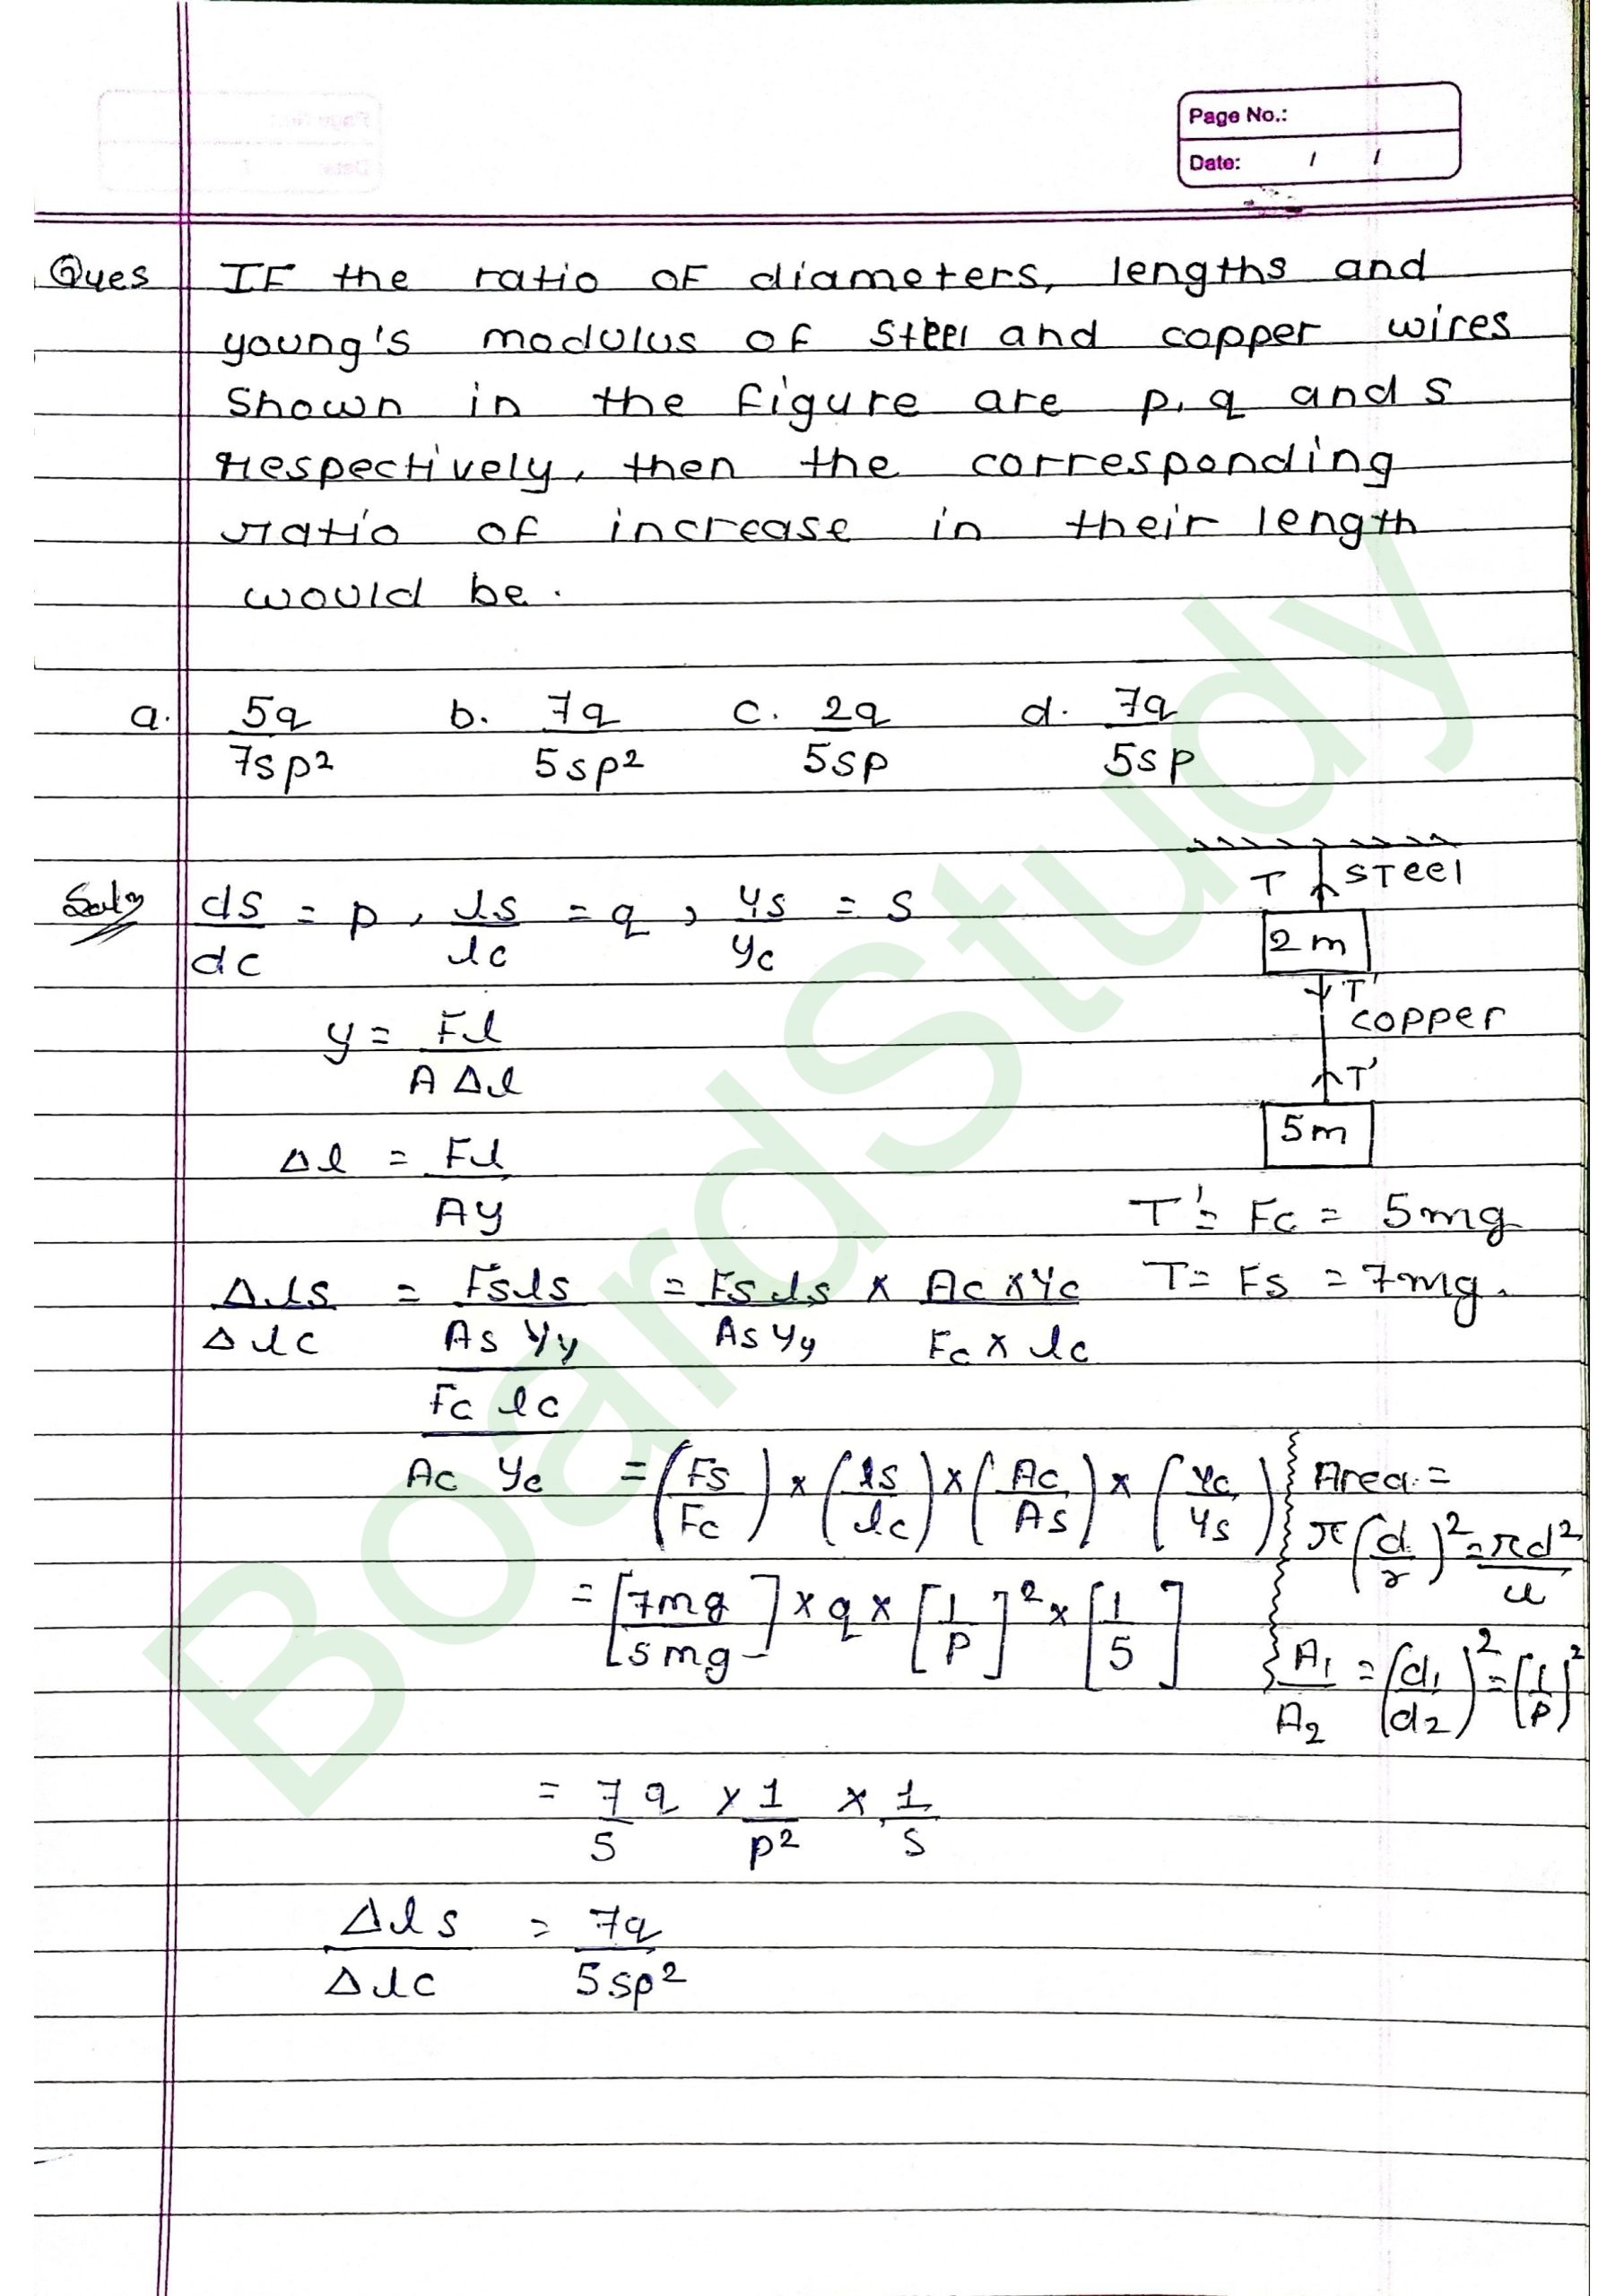 Page No.:
Date: / /
Ques IF the ratio of diameters, lengths and
young's modulus of steel and copper wires
Shown in the figure are p, q and s
respectively, then the corresponding
ratio of increase in their length
would be.
a. 5q/7sp² b. 7q/5sp² c. 2q/5sp d. 7q/5sp
Soln ds/dc = p, ls/lc = q, ys/yc = s
T STeel
2m
T'
copper
T'
5m
y = Fl/A Δl
Δl = Fl/Ay
T' = Fc = 5mg
T = Fs = 7mg.
Δls/Δlc = Fsls/As Yy / Fc lc/Ac Yc = Fs ls/As Yy × Ac × Yc/Fc × lc
= (Fs/Fc) × (ls/lc) × (Ac/As) × (Yc/Ys)
Area = π(d/2)² = πd²/4
= [7mg/5mg] × q × [1/P]² × [1/5]
A1/A2 = (d1/d2)² = (1/P)²
= 7q/5 × 1/p² × 1/s
Δls/Δlc = 7q/5sp²
BoardStudy